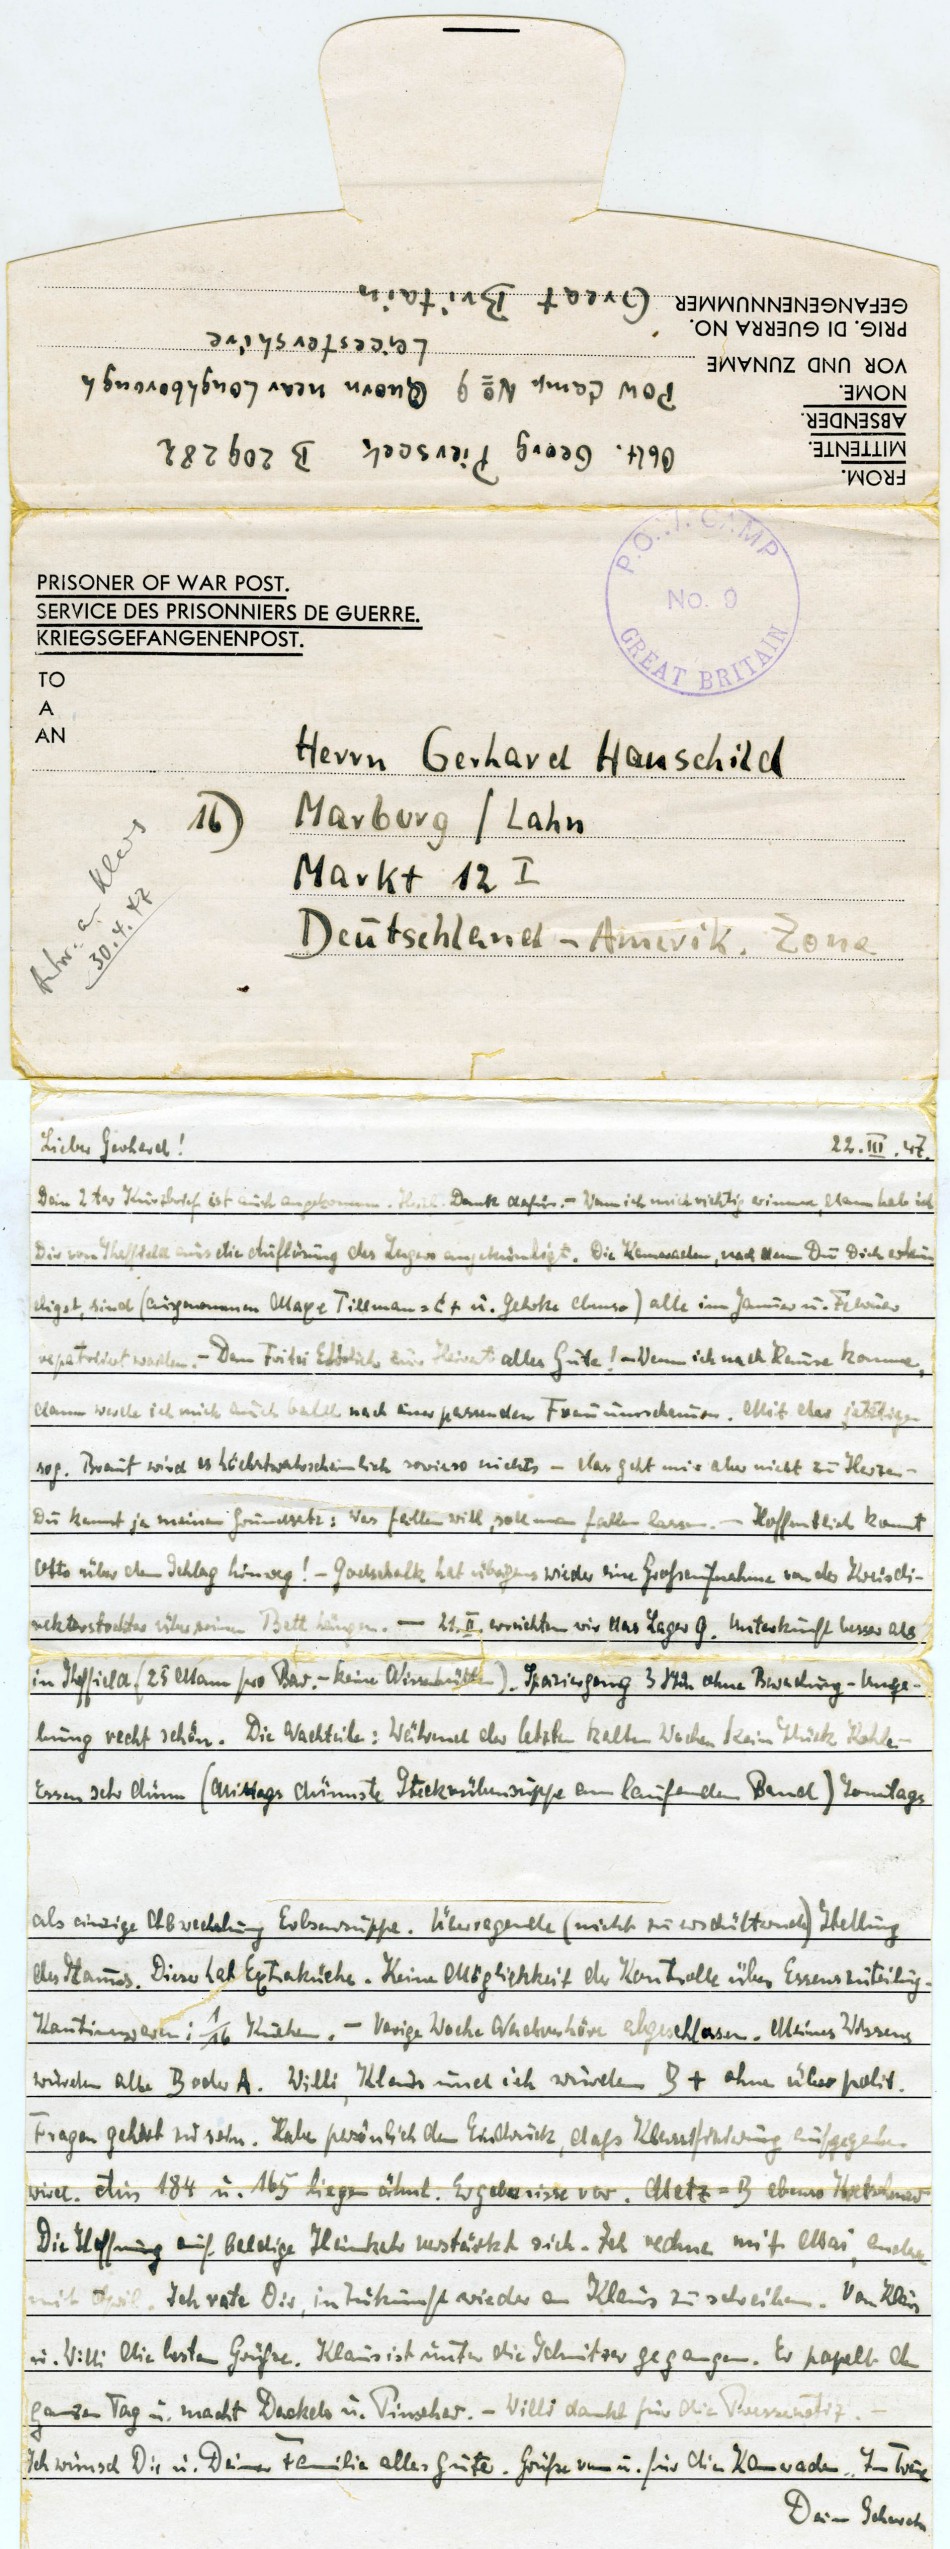 Great Britain
GEFANGENENNUMMER
PRIG. DI GUERRA NO.
Leicestershire
VOR UND ZUNAME
POW Camp No 9 Quorn near Loughborough
NOME.
ABSENDER.
Oblt. Georg B 209282
MITTENTE.
FROM.
P.O.W. CAMP
No. 9
GREAT BRITAIN
PRISONER OF WAR POST.
SERVICE DES PRISONNIERS DE GUERRE.
KRIEGSGEFANGENENPOST.
TO
A
AN
Herrn Gerhard Hauschild
16) Marburg / Lahn
Markt 12 I
Deutschland - Amerik. Zone
Antw. a. Klaus
30.4.47
Lieber Gerhard! 22.III.47.
Dein 2ter Kurzbrief ist auch angekommen. Herzl. Dank dafür. - Wenn ich mich richtig erinnere, dann hab ich
Dir von Sheffield aus die Auflösung des Lagers angekündigt. Die Kameraden, nach denen Du Dich erkun
digst, sind (ausgenommen Tillmann = C+ u. Gehrke ebenso) alle im Januar u. Februar
repatriiert worden. - Dem Fritzi zur Heirat alles Gute! - Wenn ich nach Hause komme,
dann werde ich mich auch bald nach einer passenden Frau umschauen. Mit der jetzigen
sog. Braut wird es höchstwahrscheinlich sowieso nichts - das geht mir aber nicht zu Herzen -
Du kennst ja meinen Grundsatz: Was fallen will, soll man fallen lassen. - Hoffentlich kommt
Otto über den Schlag hinweg! - Godschalk hat übrigens wieder eine Großaufnahme von der Kreisdi-
rektorstochter über seinem Bett hängen. - 21.II. erreichten wir das Lager 9. Unterkunft besser als
in Sheffield (25 Mann pro Bar. - keine Nissenhütten). Spaziergang 3 Std. ohne Bewachung - Umge-
bung recht schön. Die Nachteile: Während der letzten kalten Wochen kein Stück Kohle -
Essen sehr dünn (Mittags dünnste Steckrübensuppe am laufenden Band) Sonntags
als einzige Abwechslung Erbsensuppe. Überragende (nicht zu erschütternde) Stellung
des Stamms. Dieser hat Extraküche. Keine Möglichkeit der Kontrolle über Essenszuteilung.
Kantinenwaren: 1/16 Kuchen. - Vorige Woche abgeschlossen. Meines Wissens
wurden alle B oder A. Willi, Klaus und ich wurden B+ ohne über polit.
Fragen gehört zu sein. Habe persönlich den Eindruck, daß aufgegeben
wird. Aus 184 u. 165 liegen ähnl. Ergebnisse vor. Metz = B ebenso
Die Hoffnung auf baldige Heimkehr verstärkt sich. Ich rechne mit Mai, andere
mit April. Ich rate Dir, in Zukunft wieder an Klaus zu schreiben. Von Klaus
u. Willi die besten Grüße. Klaus ist unter die Schnitzer gegangen. Er den
ganzen Tag u. macht Dackeln u. Pinscher. - Willi dankt für die Pressenotiz. -
Ich wünsch Dir u. Deiner Familie alles Gute. Grüße von u. für die Kameraden. In Treue
Dein